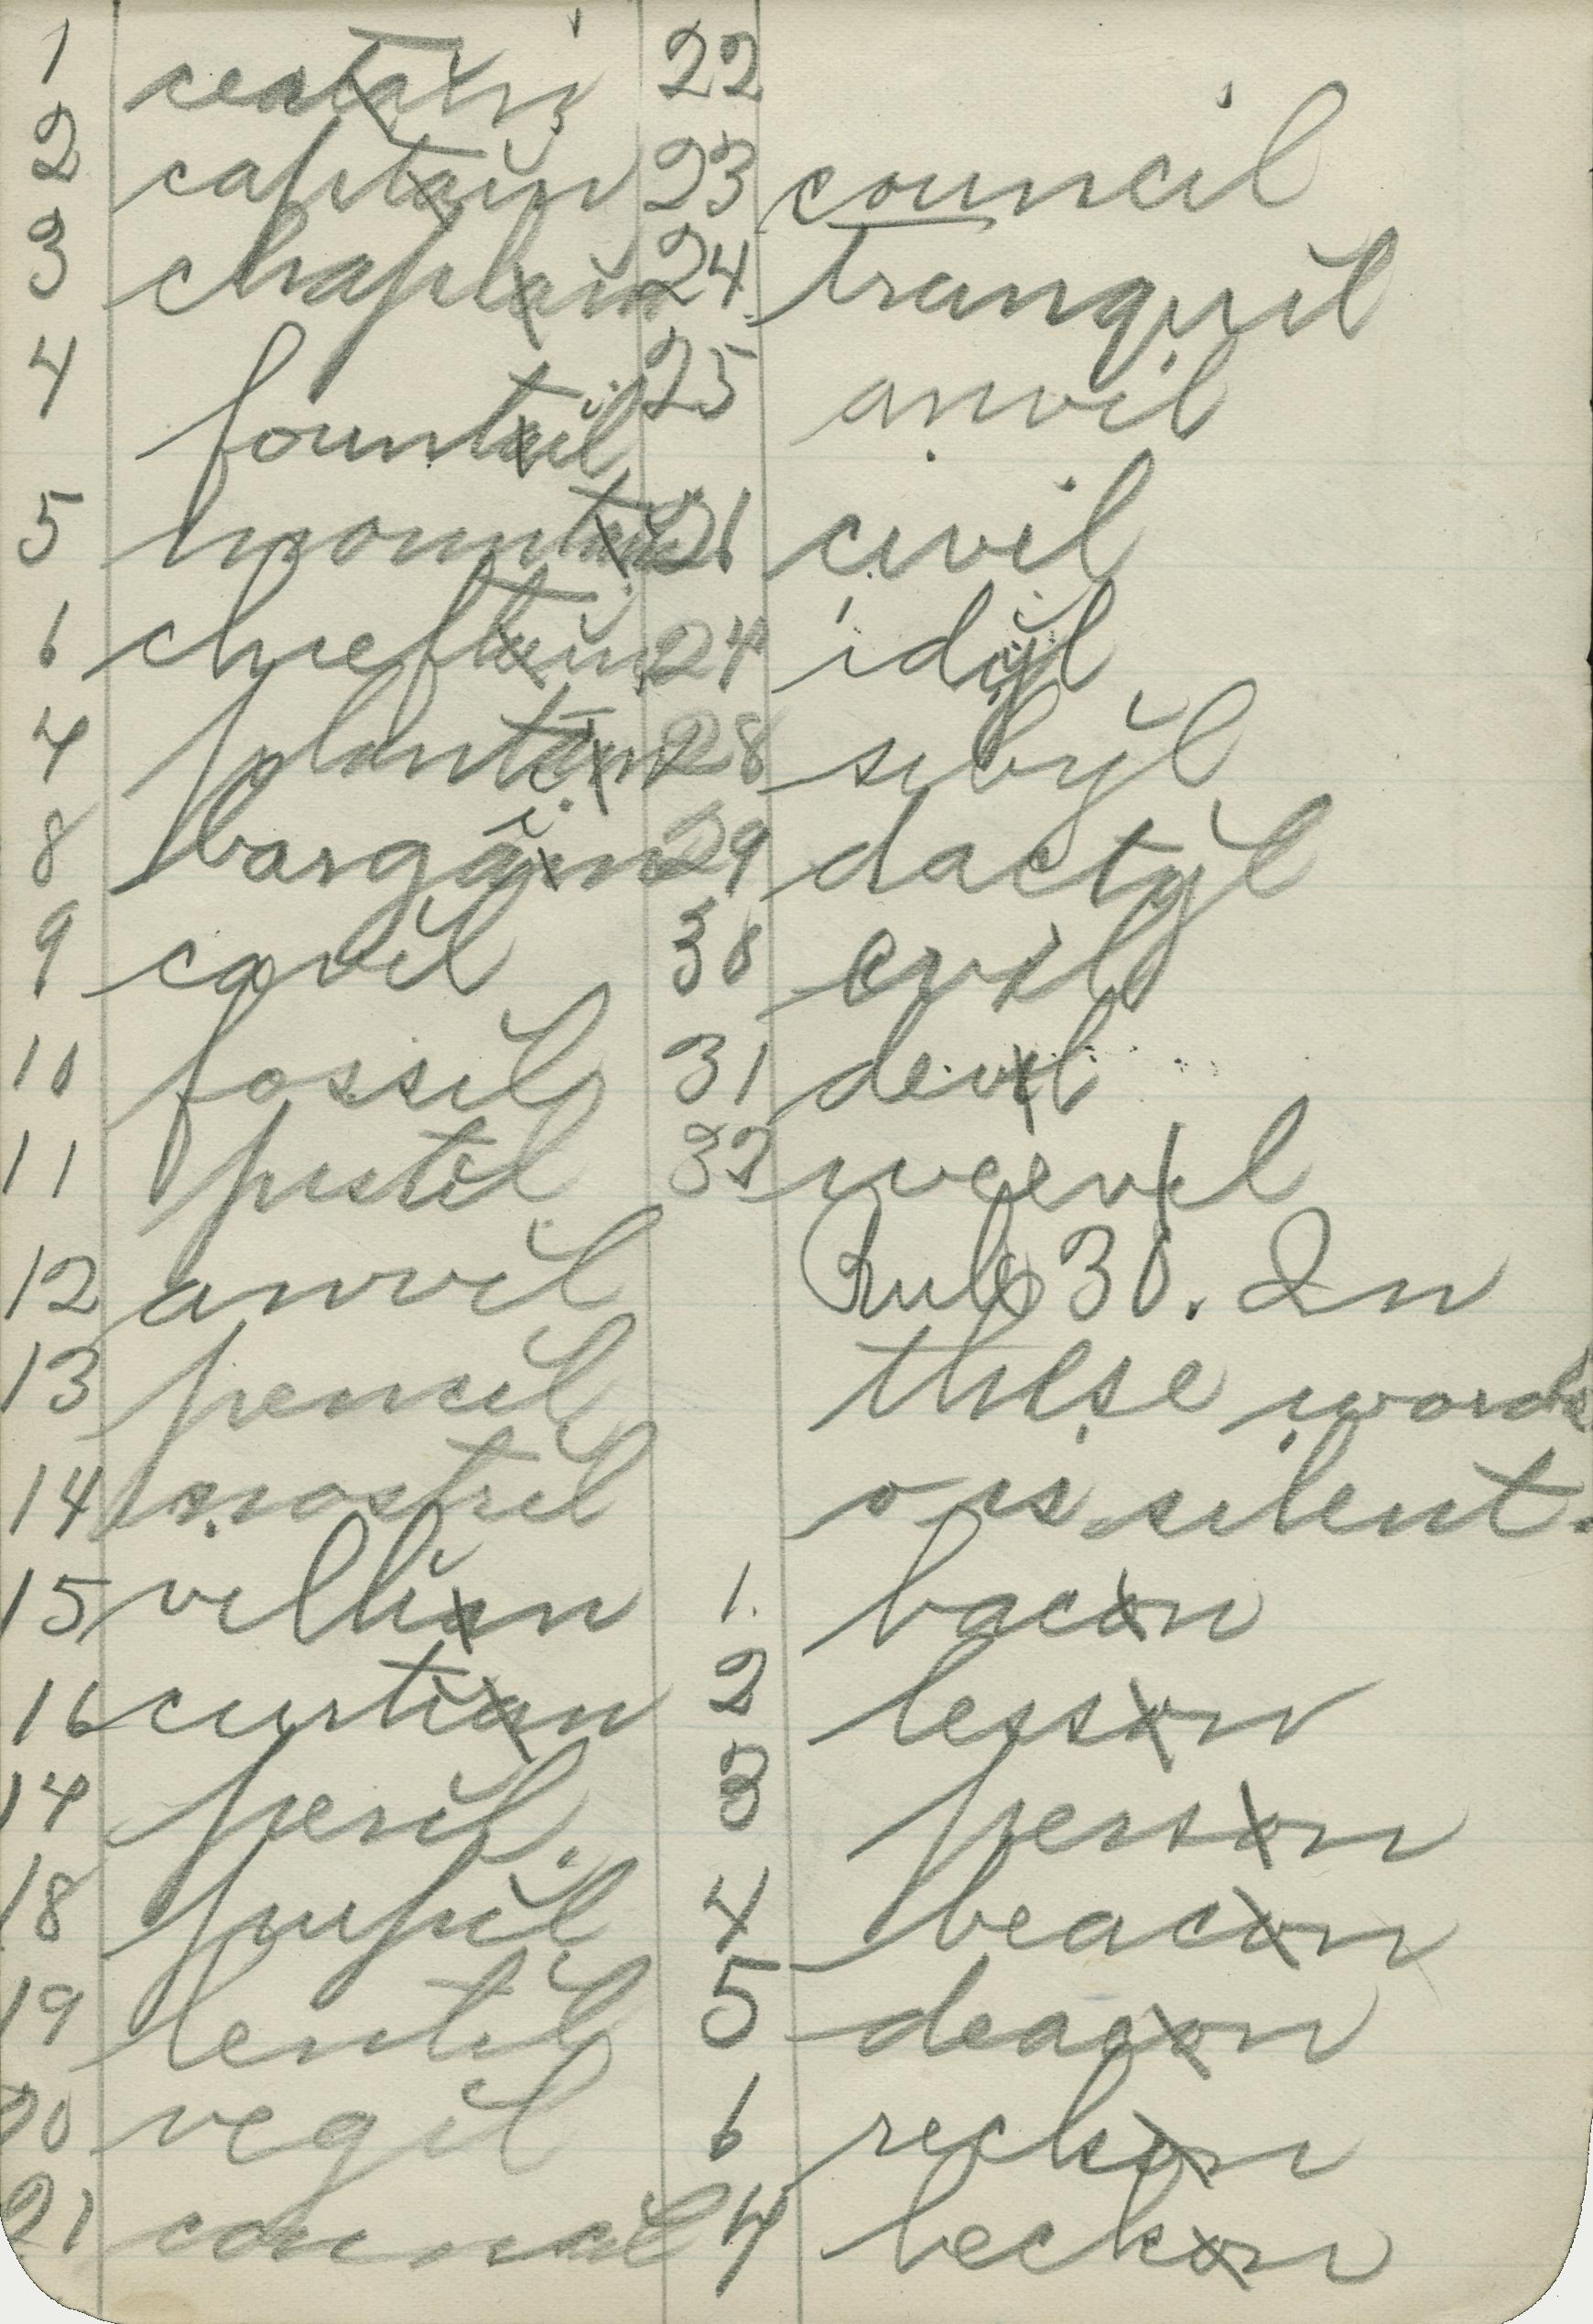 1 ceatain
2 captain
3 chaplain
4 fountail
5 mountain
6 chieftain
7 plantain
8 bargain
9 cavil
10 fossil
11 pistil
12 anvil
13 pencil
14 nostril
15 villian
16 curtian
17 peril.
18 pupil
19 lentil
20 vegil
21 council
22
23 council
24 tranquil
25 anvil
26 civil
27 idyl
28 sibyl
29 dactyl
30 evil
31 devil
32 weevil
Rule 30. In
these words
o is silent.
1. bacon
2 lesson
3 person
4 beacon
5 deacon
6 reckon
7 beckon